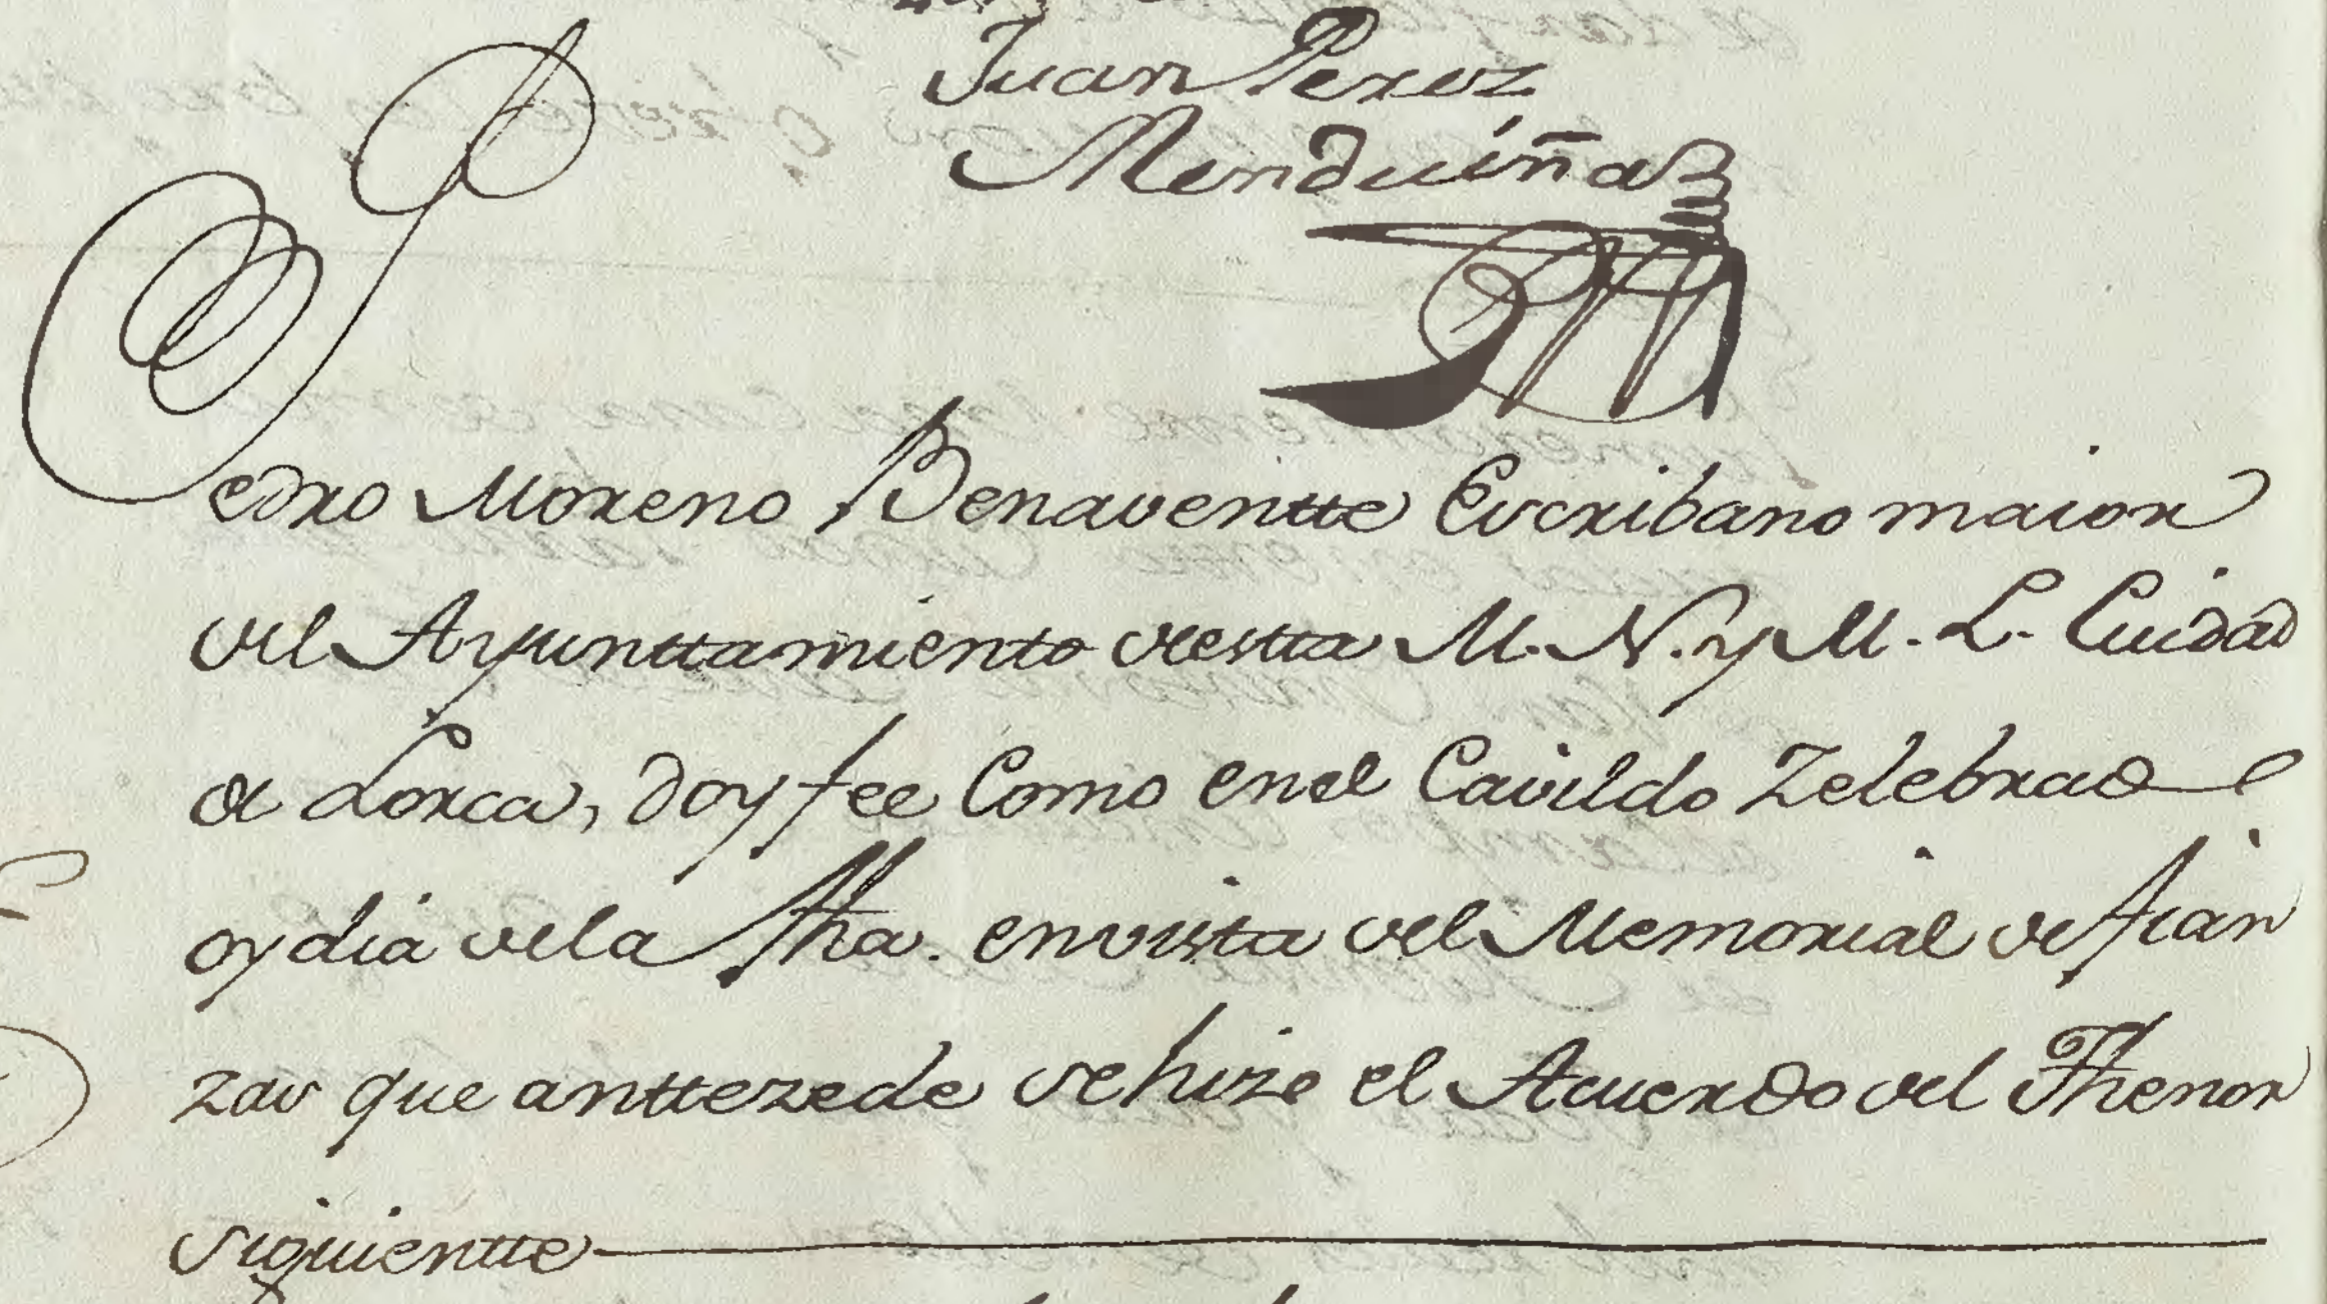 Juan Perez
Menduíña
Pedro Moreno Benaventte Escribano maior
del Ayunttamiento destta M. N. y M. L. Ciudad
de Lorca, doy fee Como en el Cavildo Zelebrado
oy dia de la fha. en vista del Memorial de fian
zas que anttezede se hizo el Acuerdo del Thenor
siguientte